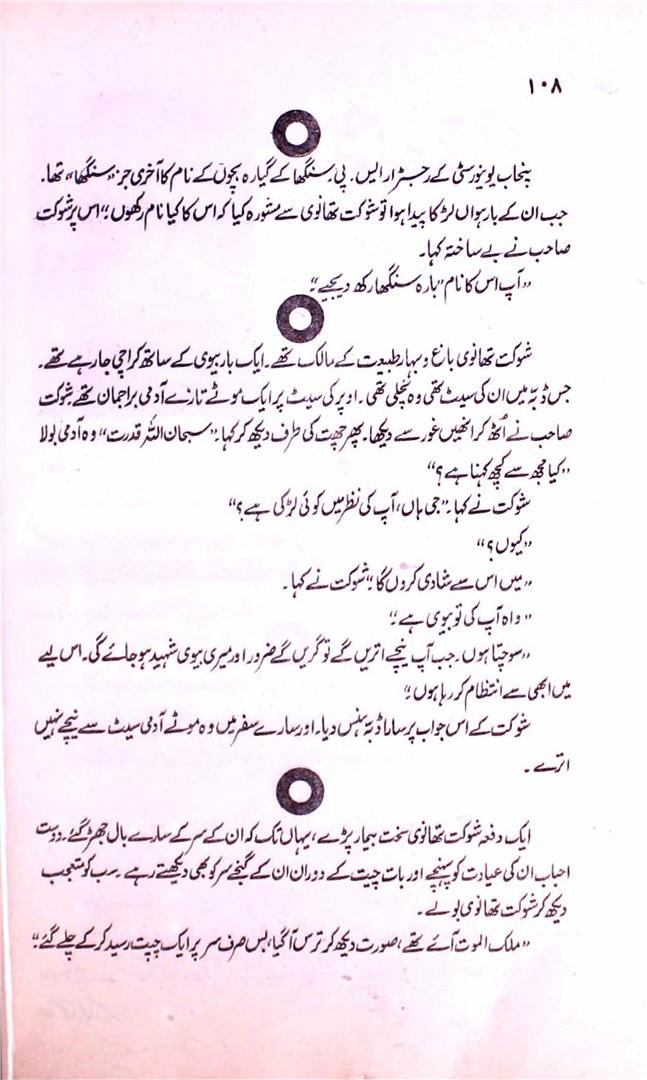 ۱۰۸
پنجاب یونیورسٹی کے رجسٹرار ایس۔ پی۔ سنگھا کے گیارہ بچوں کے نام کا آخری جز "سنگھا" تھا۔
جب ان کے بارہواں لڑکا پیدا ہوا تو شوکت تھانوی سے مشورہ کیا کہ اس کا کیا نام رکھوں؟" اس پر شوکت
صاحب نے بے ساختہ کہا۔
"آپ اس کا نام "بارہ سنگھا رکھ دیجیے"۔
شوکت تھانوی باغ و بہار طبیعت کے مالک تھے۔ ایک بار بیوی کے ساتھ کراچی جا رہے تھے۔
جس ڈبہ میں ان کی سیٹ تھی وہ نچلی تھی۔ اوپر کی سیٹ پر ایک موٹے تازے آدمی براجمان تھے شوکت
صاحب نے اُٹھ کر انھیں غور سے دیکھا۔ پھر چھت کی طرف دیکھ کر کہا: "سبحان اللہ قدرت" وہ آدمی بولا
"کیا مجھ سے کچھ کہنا ہے؟"
شوکت نے کہا۔ "جی ہاں، آپ کی نظر میں کوئی لڑکی ہے؟"
"کیوں؟"
"میں اس سے شادی کروں گا" شوکت نے کہا۔
"واہ آپ کی تو بیوی ہے"۔
"سوچتا ہوں۔ جب آپ نیچے اتریں گے تو گریں گے ضرور اور میری بیوی شہید ہو جائے گی۔ اس لیے
میں ابھی سے انتظام کر رہا ہوں"۔
شوکت کے اس جواب پر سارا ڈبہ ہنس دیا۔ اور سارے سفر میں وہ موٹے آدمی سیٹ سے نیچے نہیں
اترے۔
ایک دفعہ شوکت تھانوی سخت بیمار پڑے، یہاں تک کہ ان کے سر کے سارے بال جھڑ گئے۔ دوست
احباب ان کی عیادت کو پہنچے اور بات چیت کے دوران ان کے گنجے سر کو بھی دیکھتے رہے۔ سب کو متعجب
دیکھ کر شوکت تھانوی بولے۔
"ملک الموت آئے تھے، صورت دیکھ کر ترس آ گیا، بس صرف سر پر ایک چپت رسید کر کے چلے گئے"۔